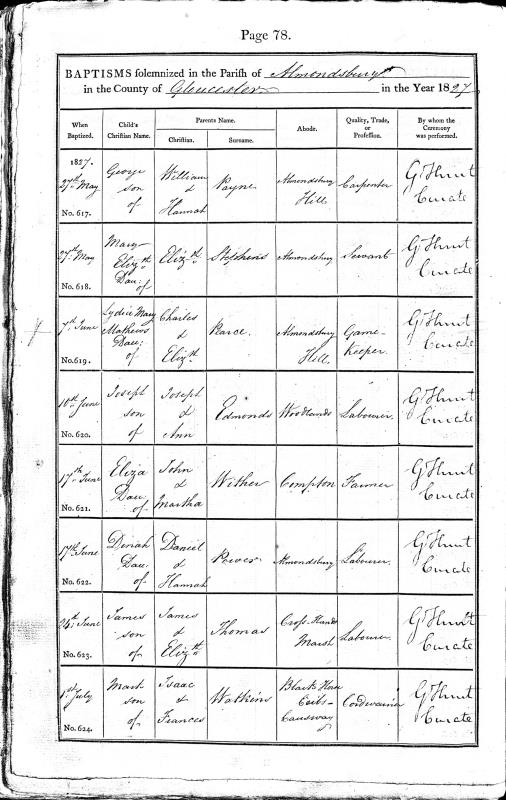 Page 78.
BAPTISMS solemnized in the Parish of Almondsbury
in the County of Gloucester in the Year 1827
When Baptized. Child's Christian Name. Parents Name. Abode. Quality, Trade, or Profession. By whom the Ceremony was performed.
Christian. Surname.
1827.
27th May George son of William & Hannah Payne Almondsbury Hill Carpenter G Hunt Curate
No. 617.
27th May Mary Elizth Dau: of Elizth Stephens Almondsbury Servant G Hunt Curate
No. 618.
7th June Lydia Mary Mathews Dau: of Charles & Elizth Almondsbury Hill Game-Keeper G Hunt Curate
No. 619.
10th June Joseph son of Joseph & Ann Edmonds Woodlands Labourer G Hunt Curate
No. 620.
17th June Eliza Dau: of John & Martha Wither Compton Farmer G Hunt Curate
No. 621.
17th June Dinah Dau: of Daniel & Hannah Power Almondsbury Labourer G Hunt Curate
No. 622.
24th June James son of James & Elizth Thomas Cross-Hands Marsh Labourer G Hunt Curate
No. 623.
1st July Mark son of Isaac & Frances Watkins Black Horse Causway Cordwainer G Hunt Curate
No. 624.